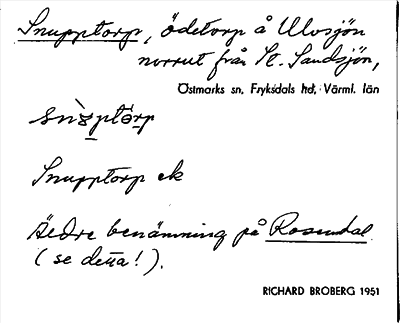 Snupptorp, ödetorp å Ulvsjön
norrut från St. Sandsjön,
Östmarks sn, Fryksdals hd, Värml. län
Snupptorp ek
Äldre benämning på Rosendal
(se detta!).
RICHARD BROBERG 1951